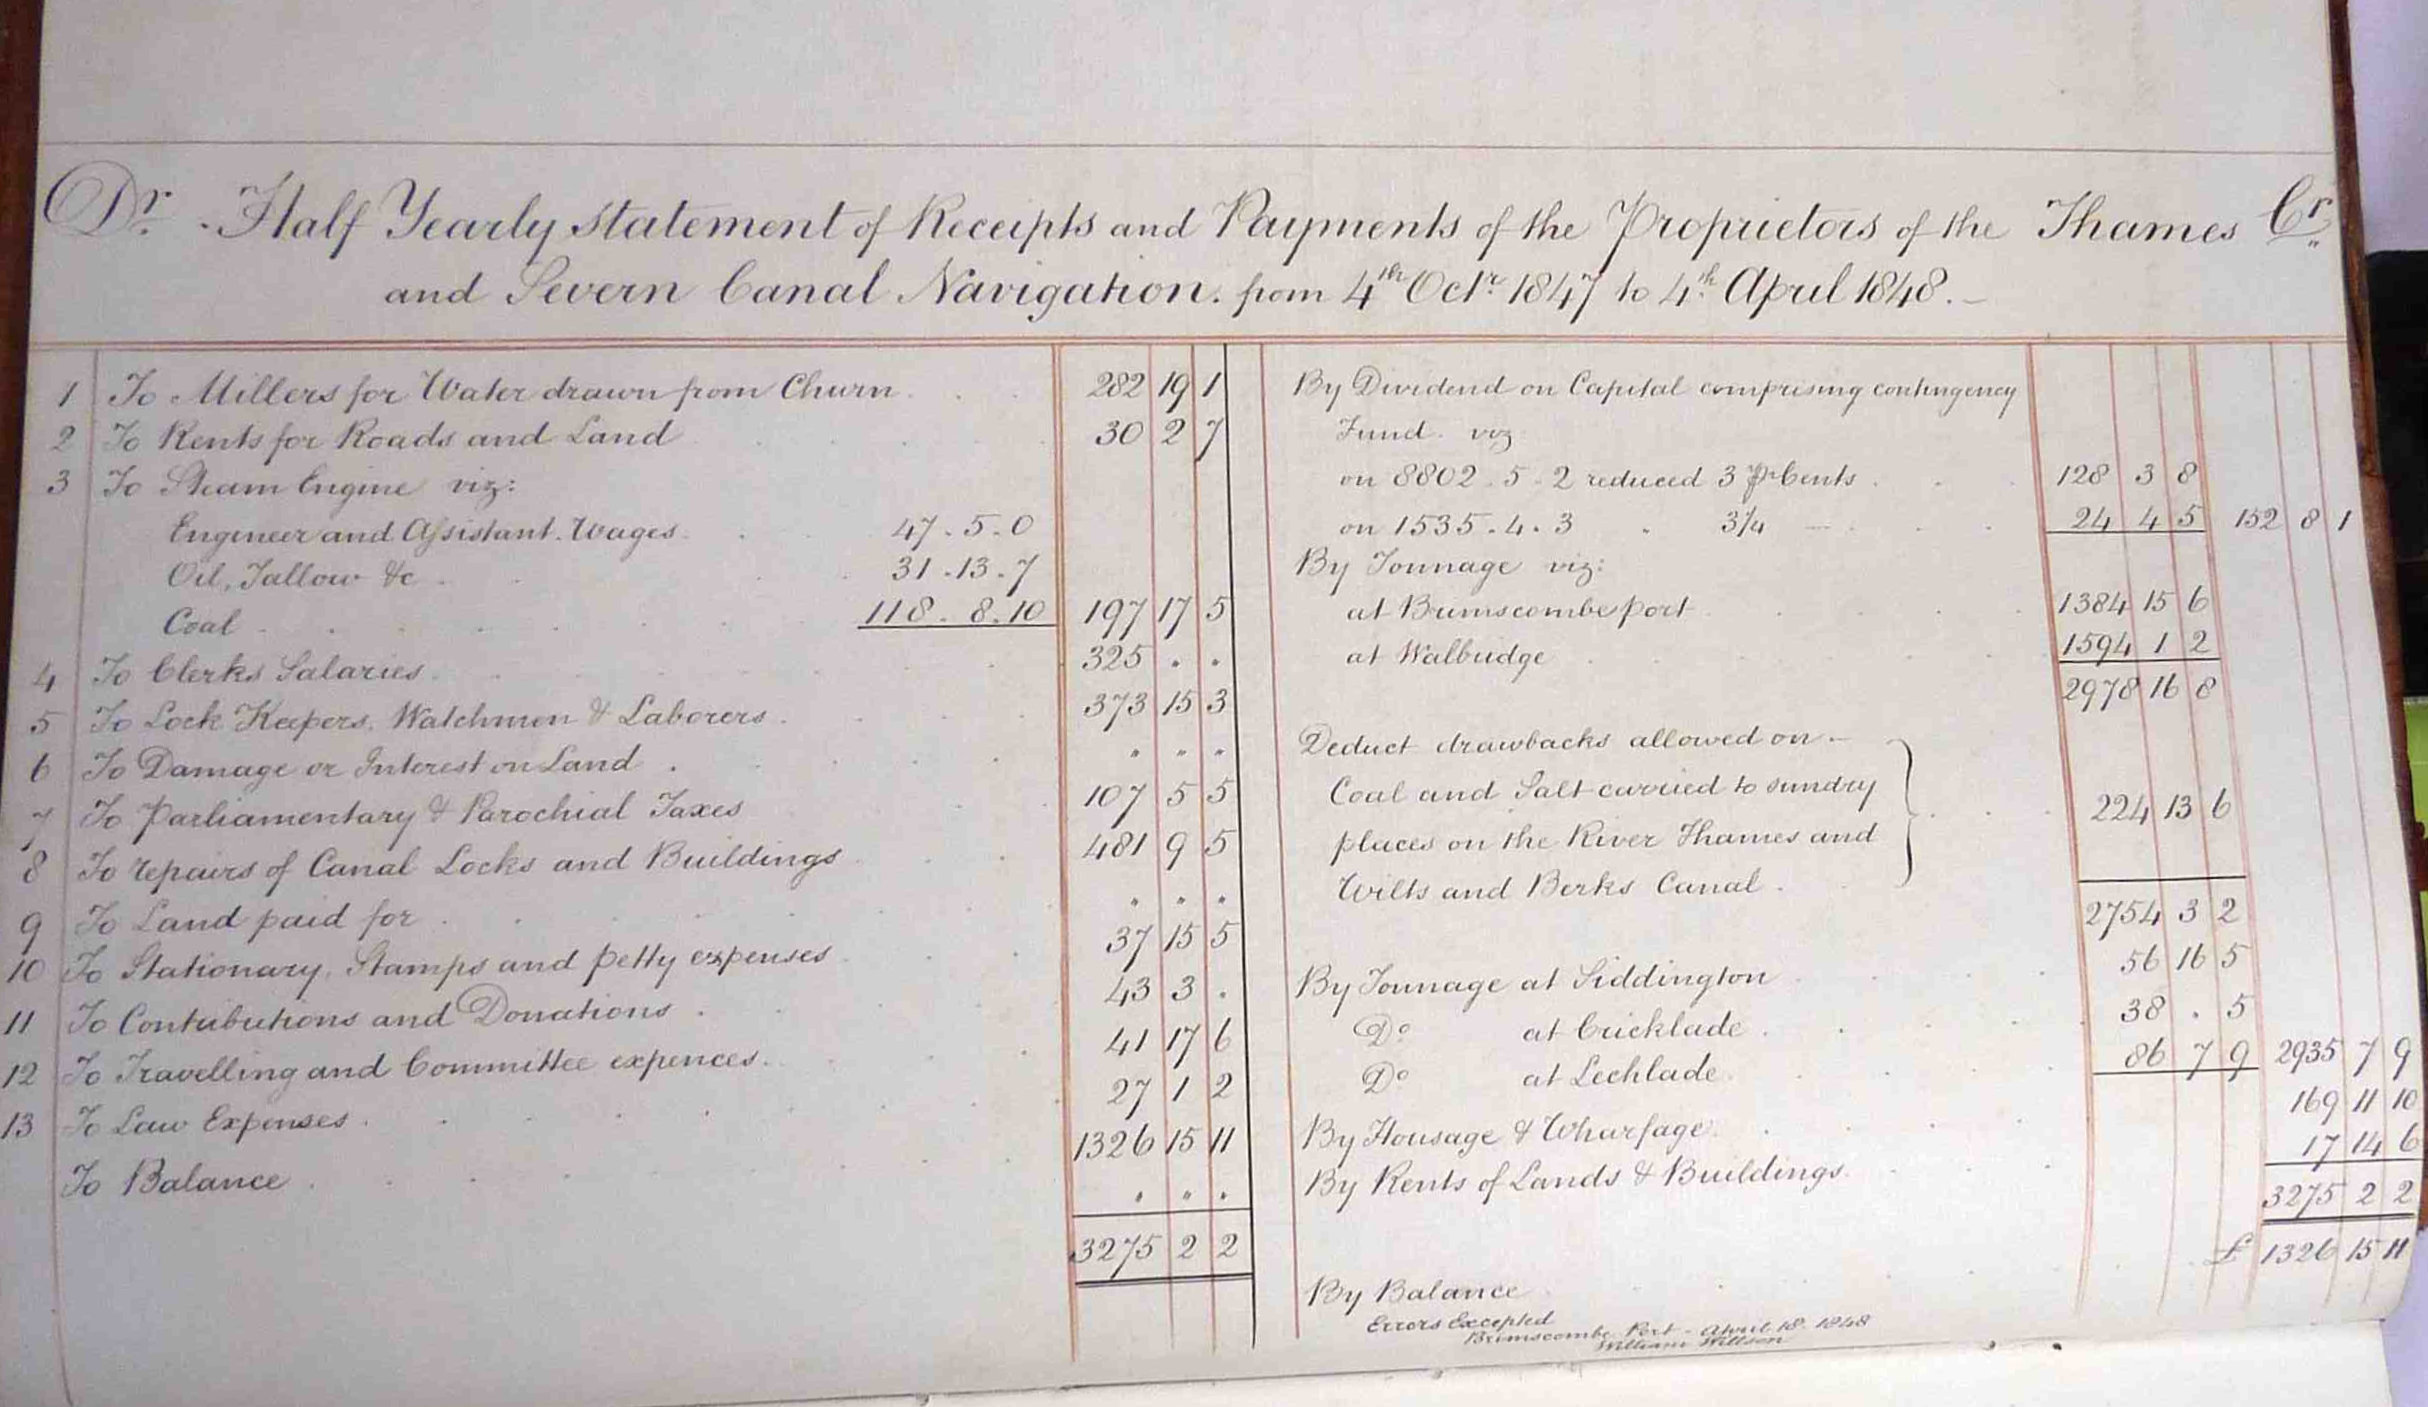 Dr. Half Yearly statement of Receipts and Payments of the Proprietors of the Thames Cr.
and Severn Canal Navigation. from 4th Octr. 1847 to 4th. April 1848.
1 To Millers for Water drawn from Churn 282 19 1
2 To Rents for Roads and Land 30 2 7
3 To Steam Engine viz:
Engineer and Assistant. Wages. 47.5.0
Oil, Tallow &c 31.13.7
Coal 118.8.10 197 17 5
4 To Clerks Salaries 325 . .
5 To Lock Keepers, Watchmen & Laborers 373 15 3
6 To Damage or Interest on Land " " "
7 To Parliamentary & Parochial Taxes 107 5 5
8 To repairs of Canal Locks and Buildings 481 9 5
9 To Land paid for " " "
10 To Stationary, Stamps and petty expenses 37 15 5
11 To Contributions and Donations 43 3 .
12 To Travelling and Committee expences 41 17 6
13 To Law Expenses 27 1 2
To Balance 1326 15 11
" " "
3275 2 2
By Dividend on Capital comprising contingency
Fund. viz
on 8802.5.2 reduced 3 Pr Cents 128 3 8
on 1535.4.3 " 3¼ 24 4 5 152 8 1
By Tonnage viz:
at Brimscombe port 1384 15 6
at Walbridge 1594 1 2
2978 16 8
Deduct drawbacks allowed on
Coal and Salt carried to sundry
places on the River Thames and 224 13 6
Wilts and Berks Canal
2754 3 2
By Tonnage at Siddington 56 16 5
Do at Cricklade 38 . 5
Do at Lechlade 86 7 9 2935 7 9
By Housage & Wharfage 169 11 10
By Rents of Lands & Buildings 17 14 6
3275 2 2
By Balance £ 1326 15 11
Errors Excepted
Brimscombe Port - April 18. 1848
William Willson